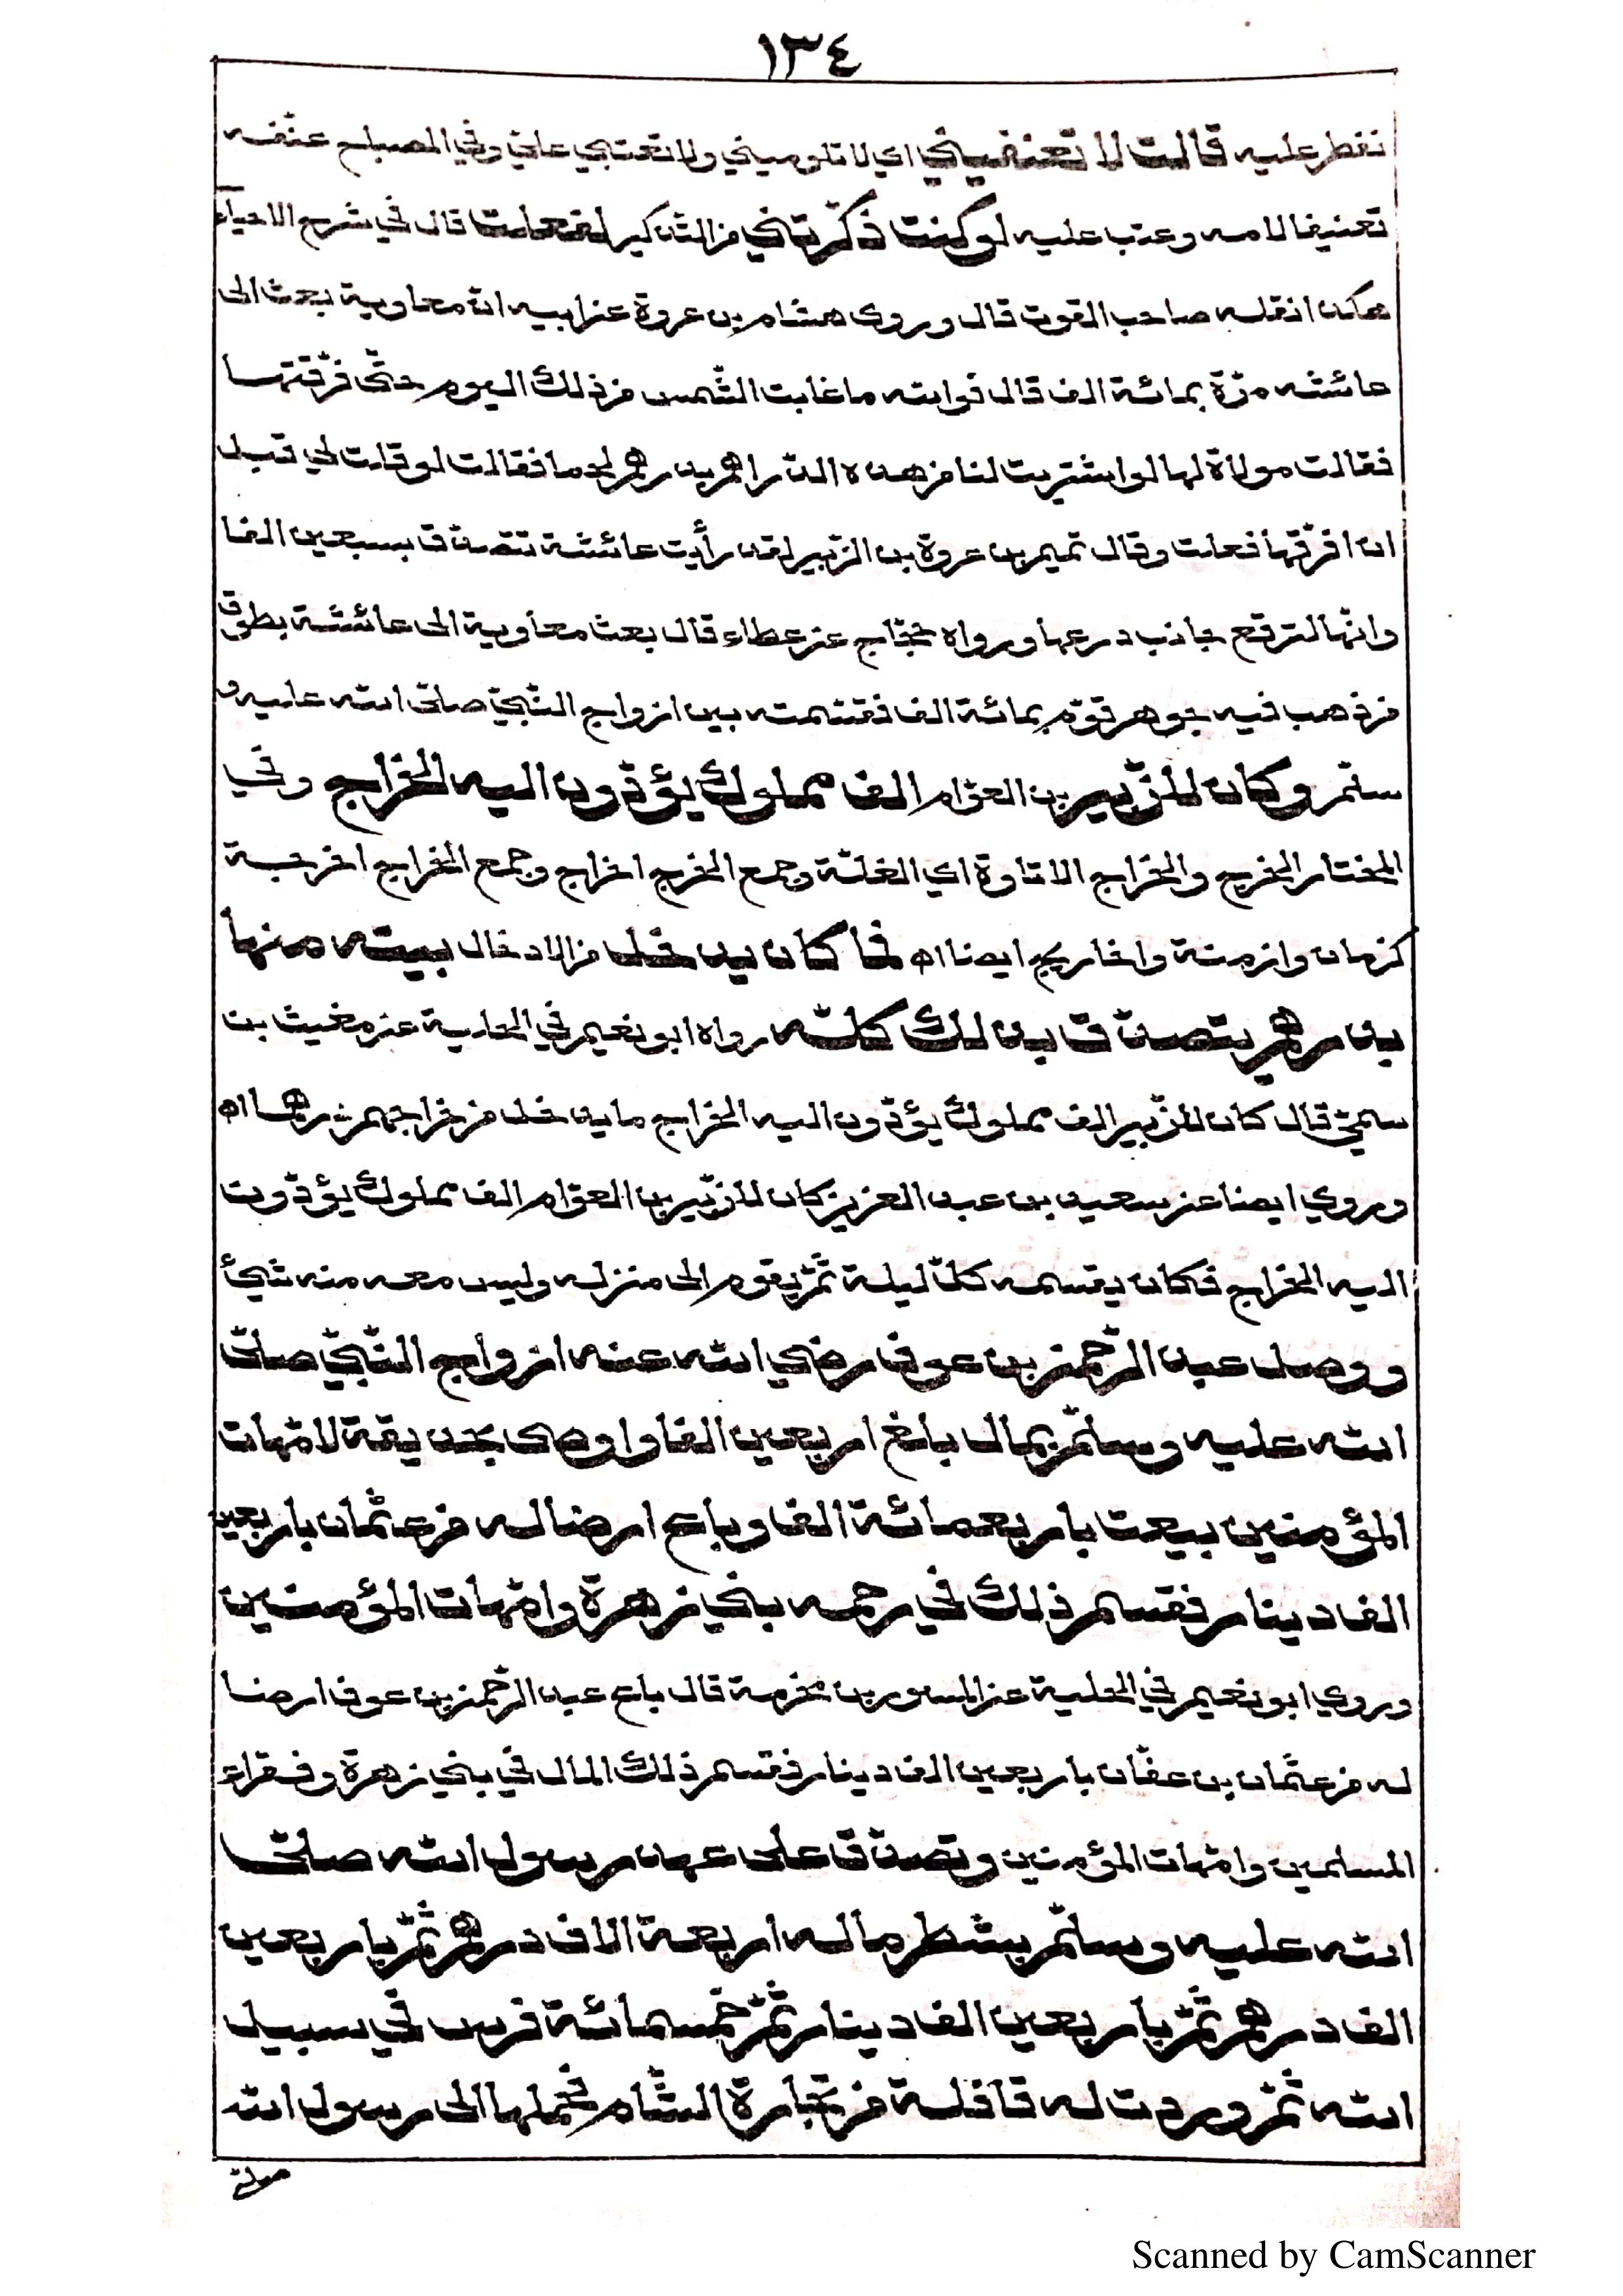 ١٣٤
نفطر عليه قالت لا تعنفيني اي لا تلوميني ولا تعتبي علي وفي المصباح عنّفه
تعنيفا لامه وعتب عليه لو كنت ذكّرتني من التذكير لفعلت قال في شرح الاحياء
هكذا نقله صاحب القوت قال وروى هشام بن عروة عن ابيه انّ معاوية بعث الى
عائشه مرّة بمائة الف قال فوالله ما غابت الشّمس من ذلك اليوم حتّى فرّقتها
فقالت مولاة لها لو اشتريت لنا من هذه الدّراهم بدرهم لحما فقالت لو قلت لي قبل
ان افرّقها فعلت وقال تميم بن عروة بن الزّبير لقد رأيت عائشة تتصدّق بسبعين الفا
وانّها لترقع جانب درعها ورواه حجّاج عن عطاء قال بعث معاوية الى عائشة بطوق
من ذهب فيه جوهر قوّم بمائة الف فقسّمته بين ازواج النّبيّ صلّى الله عليه و
سلّم وكان للزّبير بن العوّام الف مملوك يؤدّون اليه الخراج وفي
المختار الخرج والخراج الاتاوة اي الغلّة وجمع الخرج اخراج وجمع الخراج اخرجة
كزمان وازمنة واخاريج ايضا اه فما كان يدخل من الادخال بيته منها
بدرهم يتصدّق بذلك كلّه رواه ابو نعيم في الحلية عن مغيث بن
سميّ قال كان للزّبير الف مملوك يؤدّون اليه الخراج ما يدخل من خراجهم درهما اه
وروي ايضا عن سعيد بن عبد العزيز كان للزّبير بن العوّام الف مملوك يؤدّون
اليه الخراج فكان يقسمه كلّ ليلة ثمّ يقوم الى منزله وليس معه منه شيئ
ووصل عبد الرّحمن بن عوف رضي الله عنه ازواج النّبيّ صلّى
الله عليه وسلّم بمال بلغ اربعين الفا واوصى بحديقة لامّهات
المؤمنين بيعت باربعمائة الف وباع ارضا له من عثمان باربعين
الف دينار فقسم ذلك في رحمه بني زهرة وامّهات المؤمنين
وروي ابو نعيم في الحلية عن المسور بن مخرمة قال باع عبد الرّحمن بن عوف ارضا
له من عثمان بن عفّان باربعين الف دينار فقسم ذلك المال في بني زهرة وفقراء
المسلمين وامّهات المؤمنين وتصدّق على عهد رسول الله صلّى
الله عليه وسلّم بشطر ماله اربعة الاف درهم ثمّ باربعين
الف درهم ثمّ باربعين الف دينار ثمّ خمسمائة فرس في سبيل
الله ثمّ وردت له قافلة من تجارة الشّام فحملها الى رسول الله
صلّى
Scanned by CamScanner